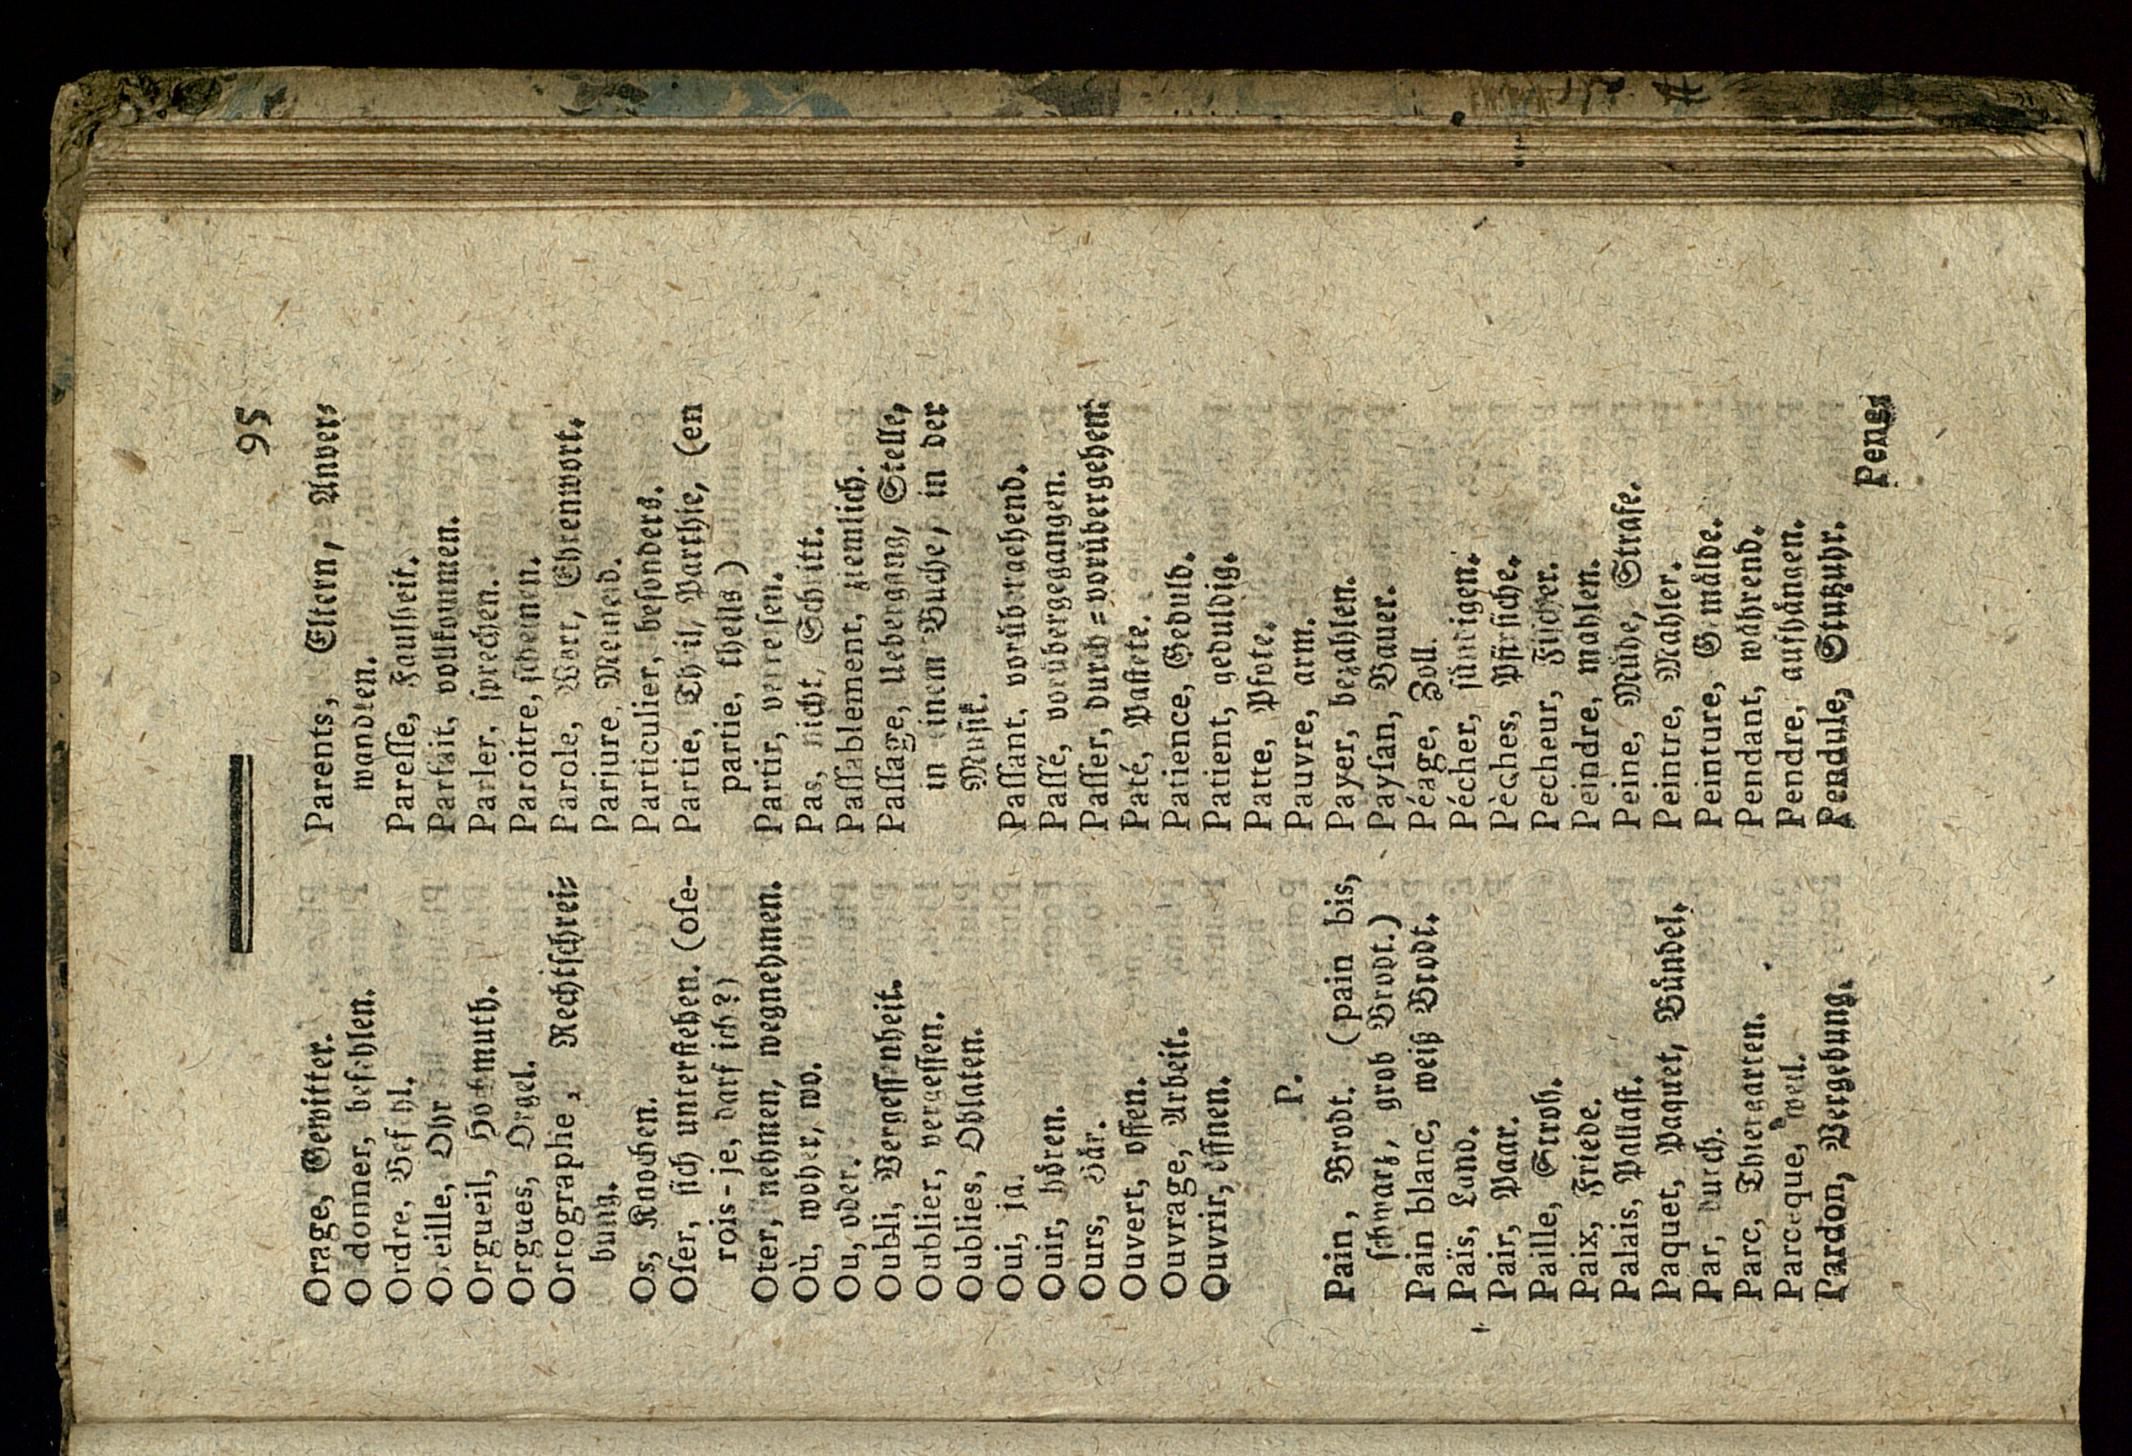 95
Orage, Gewitter.
Ordonner, befehlen.
Ordre, Befehl.
Oreille, Ohr
Orgueil, Hochmuth.
Orgues, Orgel.
Ortographe, Rechtschrei-
bung.
Os, Knochen.
Oſer, ſich unterſtehen. (oſe-
rois-je, darf ich?)
Oter, nehmen, wegnehmen.
Où, woher, wo.
Ou, oder.
Oubli, Vergeſſenheit.
Oublier, vergeſſen.
Oublies, Oblaten.
Oui, ja.
Ouir, hören.
Ours, Bär.
Ouvert, offen.
Ouvrage, Arbeit.
Ouvrir, öffnen.
P.
Pain, Brodt. (pain bis,
ſchwarz, grob Brodt.)
Pain blanc, weiß Brodt.
Païs, Land.
Pair, Paar.
Paille, Stroh.
Paix, Friede.
Palais, Pallaſt.
Paquet, Paquet, Bündel.
Par, durch.
Parc, Thiergarten.
Parceque, weil.
Pardon, Vergebung.
Parents, Eltern, Anver-
wandten.
Pareſſe, Faulheit.
Parfait, vollkommen.
Parler, ſprechen.
Paroitre, ſcheinen.
Parole, Wort, Ehrenwort.
Parjure, Meineid.
Particulier, beſonders.
Partie, Theil, Parthie, (en
partie, theils)
Partir, verreiſen.
Pas, nicht, Schritt.
Paſſablement, ziemlich.
Paſſage, Uebergang, Stelle,
in einem Buche, in der
Muſik.
Paſſant, vorübergehend.
Paſſé, vorübergegangen.
Paſſer, durch-vorübergehen.
Paté, Paſtete.
Patience, Geduld.
Patient, geduldig.
Patte, Pfote.
Pauvre, arm.
Payer, bezahlen.
Payſan, Bauer.
Péage, Zoll.
Pécher, ſündigen.
Pèches, Pfirſiche.
Pecheur, Fiſcher.
Peindre, mahlen.
Peine, Mühe, Strafe.
Peintre, Mahler.
Peinture, Gemälde.
Pendant, während.
Pendre, aufhängen.
Pendule, Stutzuhr.
Pens-